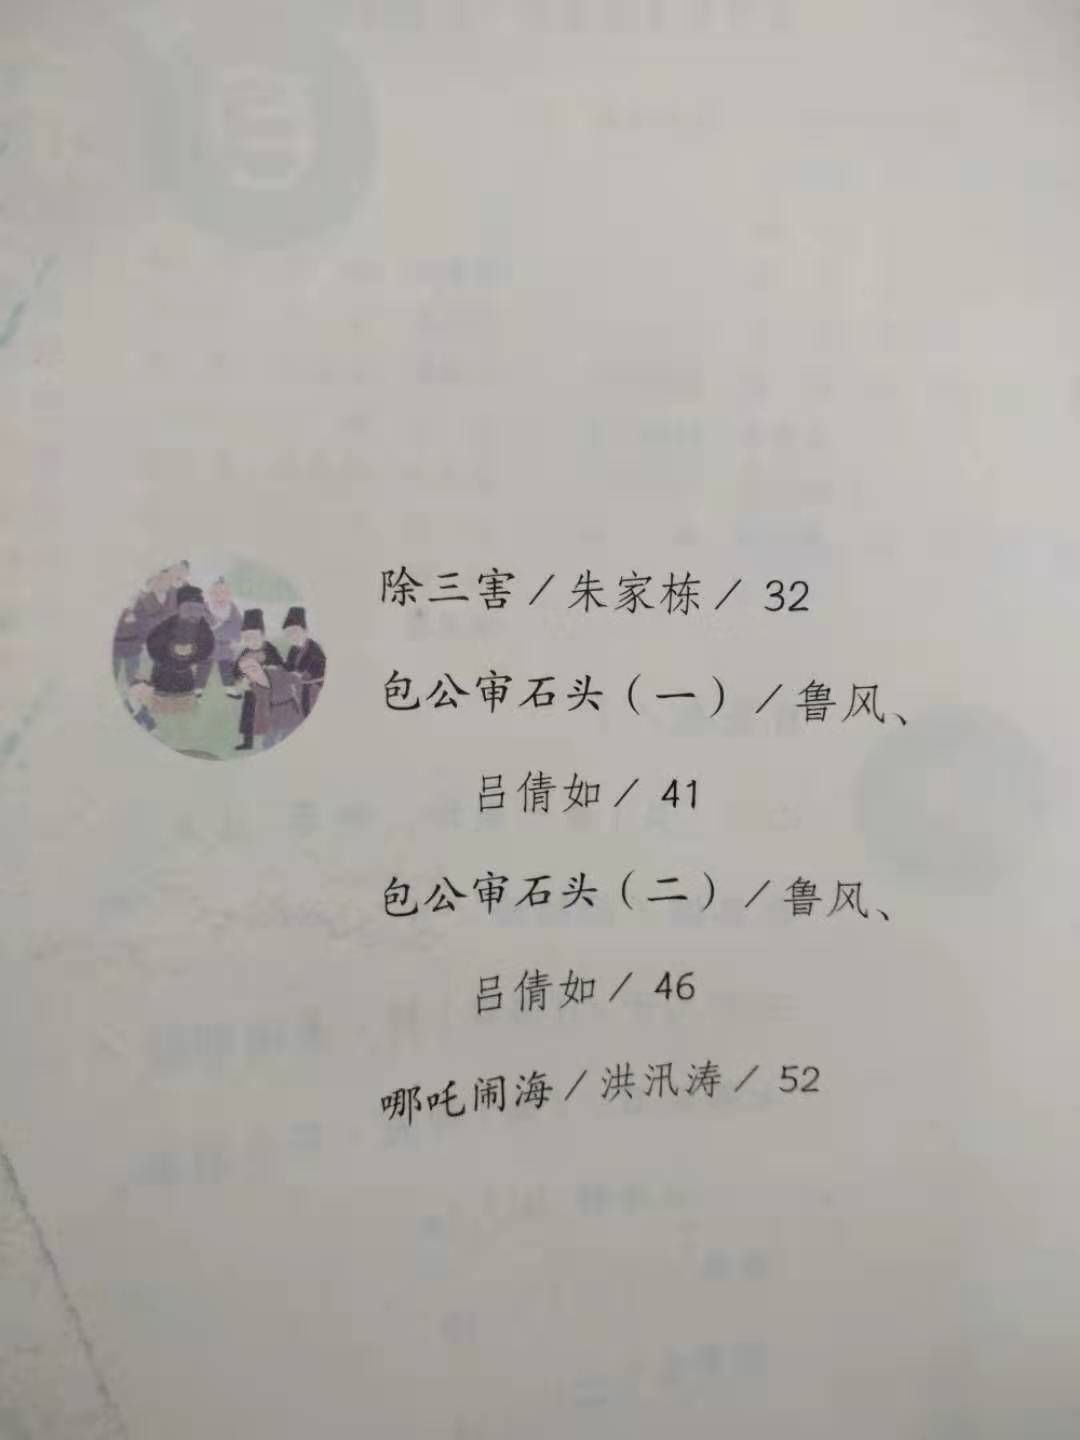 除三害 / 朱家栋 / 32
包公审石头（一）/ 鲁风、
吕倩如 / 41
包公审石头（二）/ 鲁风、
吕倩如 / 46
哪吒闹海 / 洪汛涛 / 52